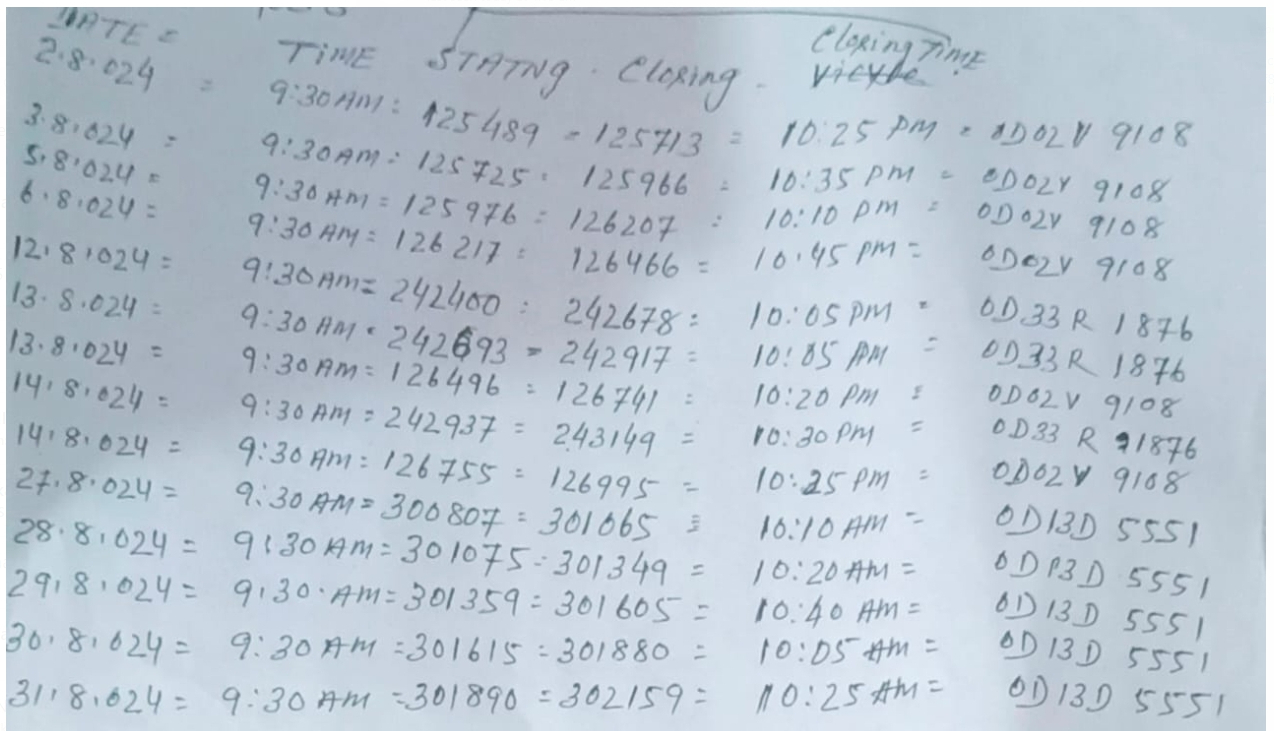 DATE =
TIME STATNG . Closing - Closing TIME
2.8.024 = 9:30 AM: 125489 = 125713 = 10:25 PM = OD02V 9108
3.8.024 = 9:30 AM = 125725 . 125966 = 10:35 PM = OD02Y 9108
5.8.024 = 9:30 AM = 125976 = 126207 : 10:10 PM = OD02Y 9108
6.8.024 = 9:30 AM = 126217 = 126466 = 10.45 PM = OD02V 9108
12.8.024 = 9:30 AM = 242400 : 242678 = 10:05 PM = OD.33 R 1876
13.8.024 = 9:30 AM = 242693 = 242917 = 10:05 PM = OD.33 R 1876
13.8.024 = 9:30 AM = 126496 = 126741 = 10:20 PM = OD02V 9108
14.8.024 = 9:30 AM = 242937 = 243149 = 10:30 PM = OD33 R 1876
14.8.024 = 9:30 AM = 126755 = 126995 = 10:25 PM = OD02V 9108
27.8.024 = 9:30 AM = 300807 = 301065 = 10:10 AM = OD13D 5551
28.8.024 = 9:30 AM = 301075 = 301349 = 10:20 AM = OD13D 5551
29.8.024 = 9:30 AM = 301359 = 301605 = 10:40 AM = OD13D 5551
30.8.024 = 9:30 AM = 301615 = 301880 = 10:05 AM = OD13D 5551
31.8.024 = 9:30 AM = 301890 = 302159 = 10:25 AM = OD13D 5551